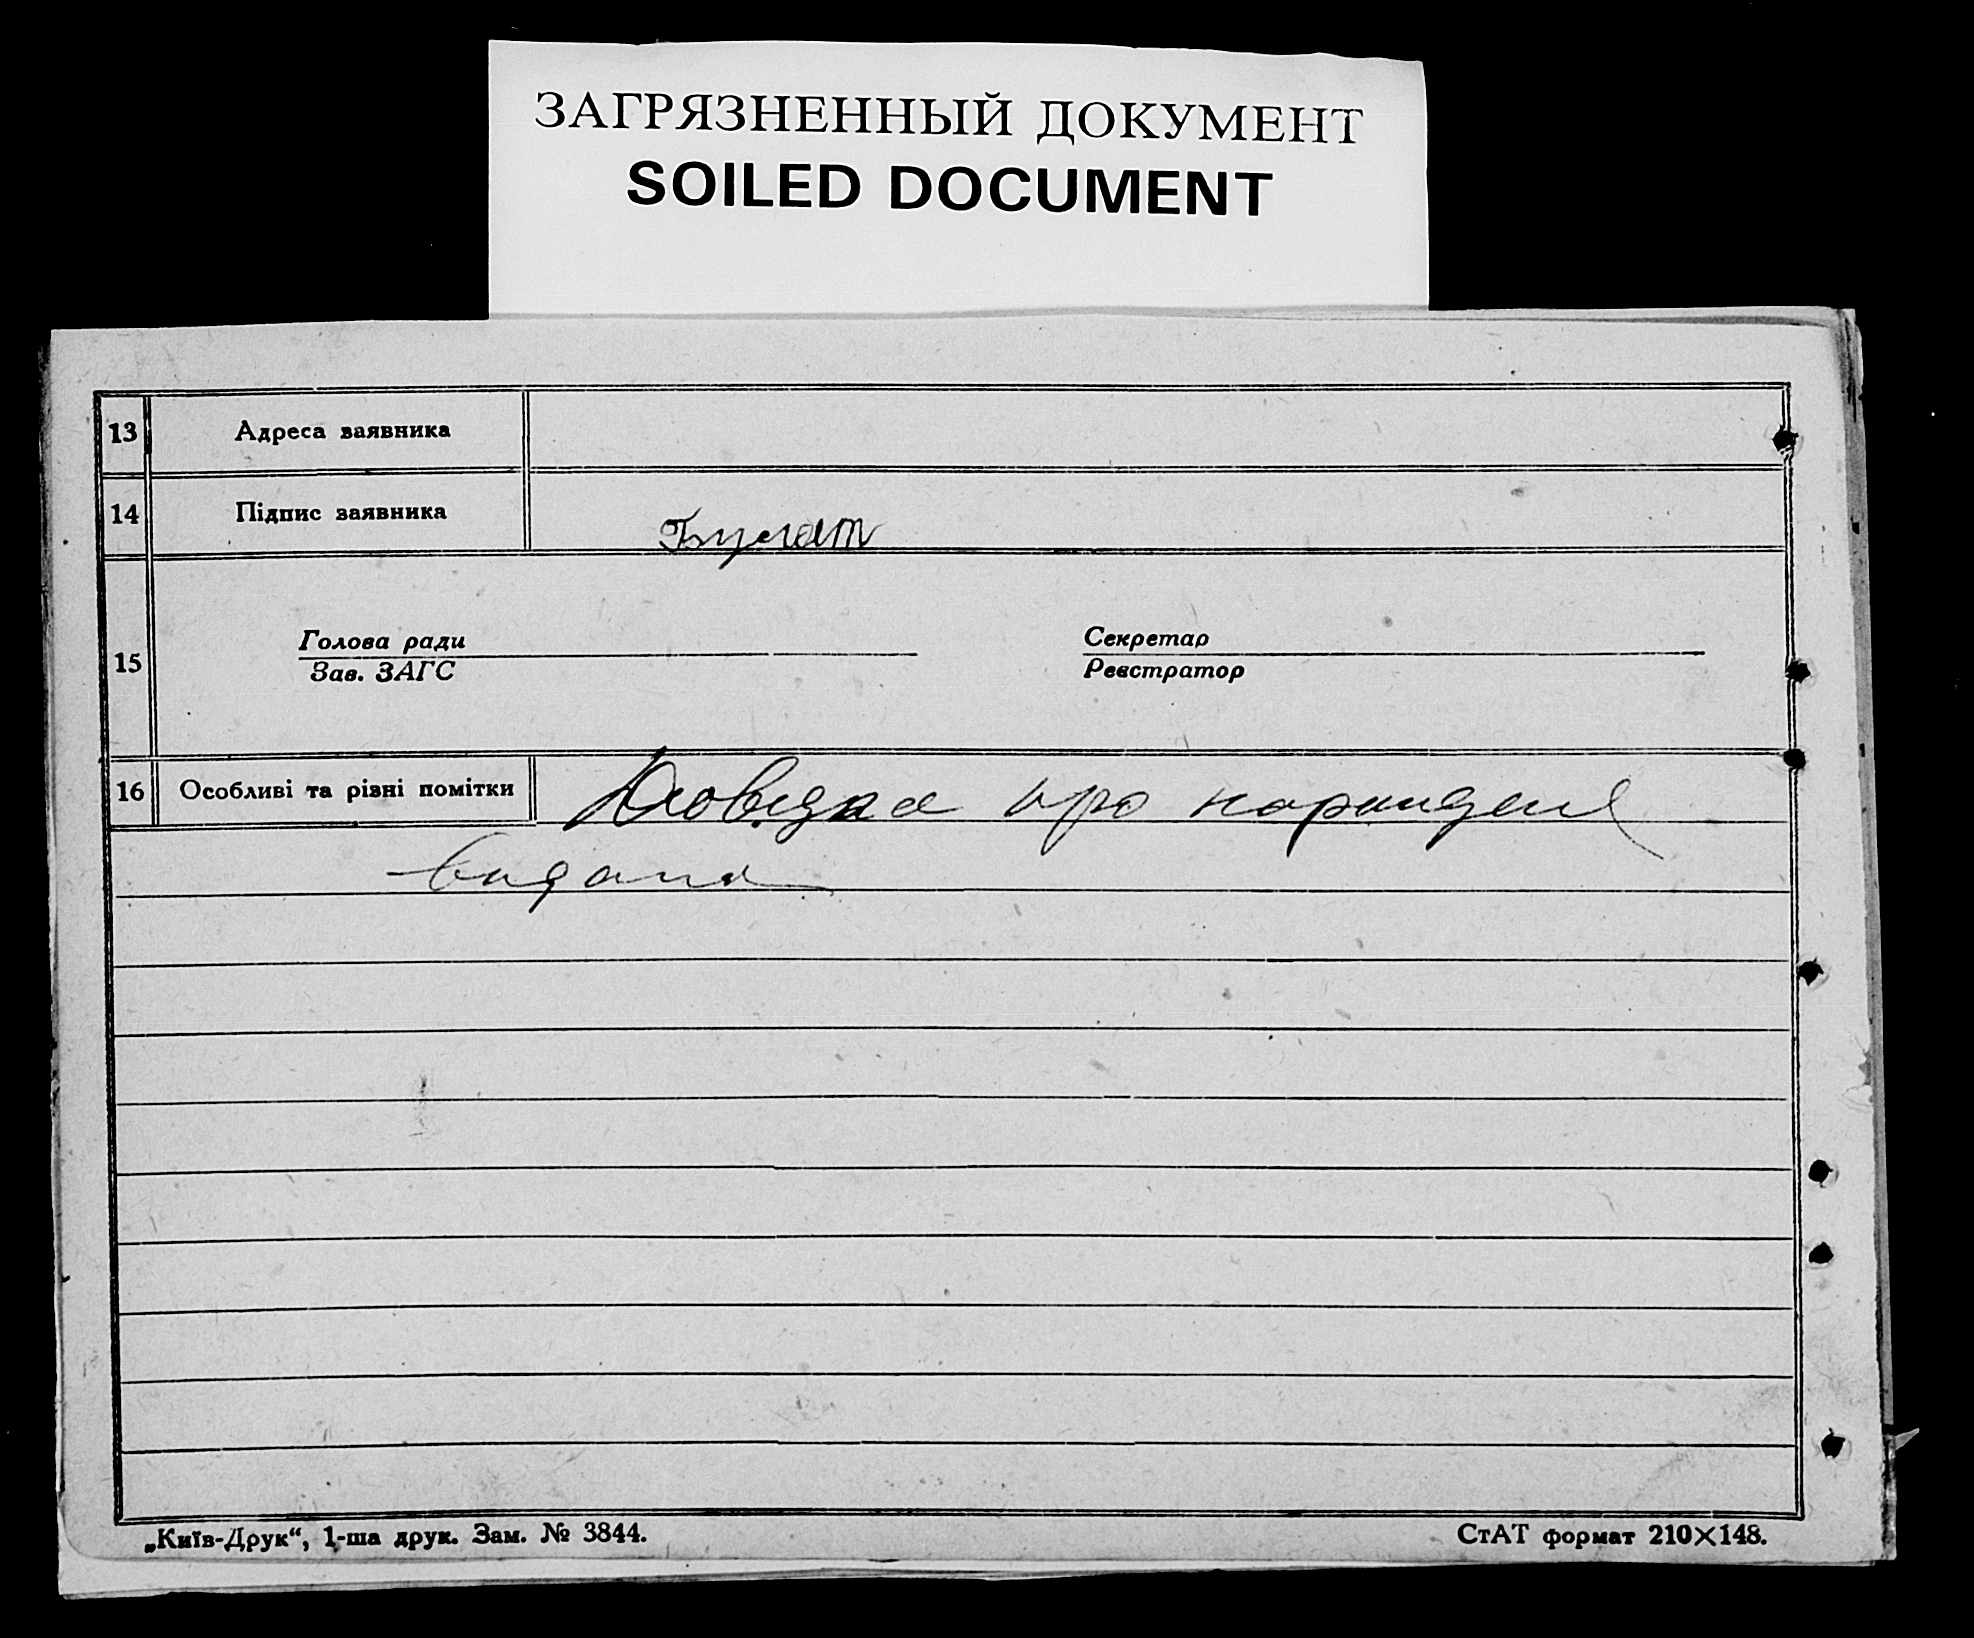 ЗАГРЯЗНЕННЫЙ ДОКУМЕНТ
SOILED DOCUMENT
13 Адреса заявника
14 Підпис заявника
15 Голова ради Секретар
Зав. ЗАГС Реєстратор
16 Особливі та різні помітки Довідка про народженє
видана
„Київ-Друк“, 1-ша друк. Зам. № 3844. СтАТ формат 210×148.